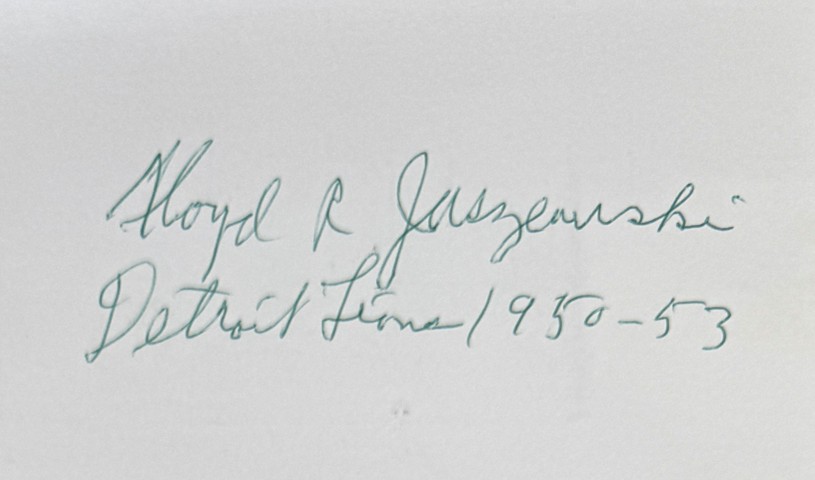 Floyd R Jaszewski
Detroit Lions 1950-53